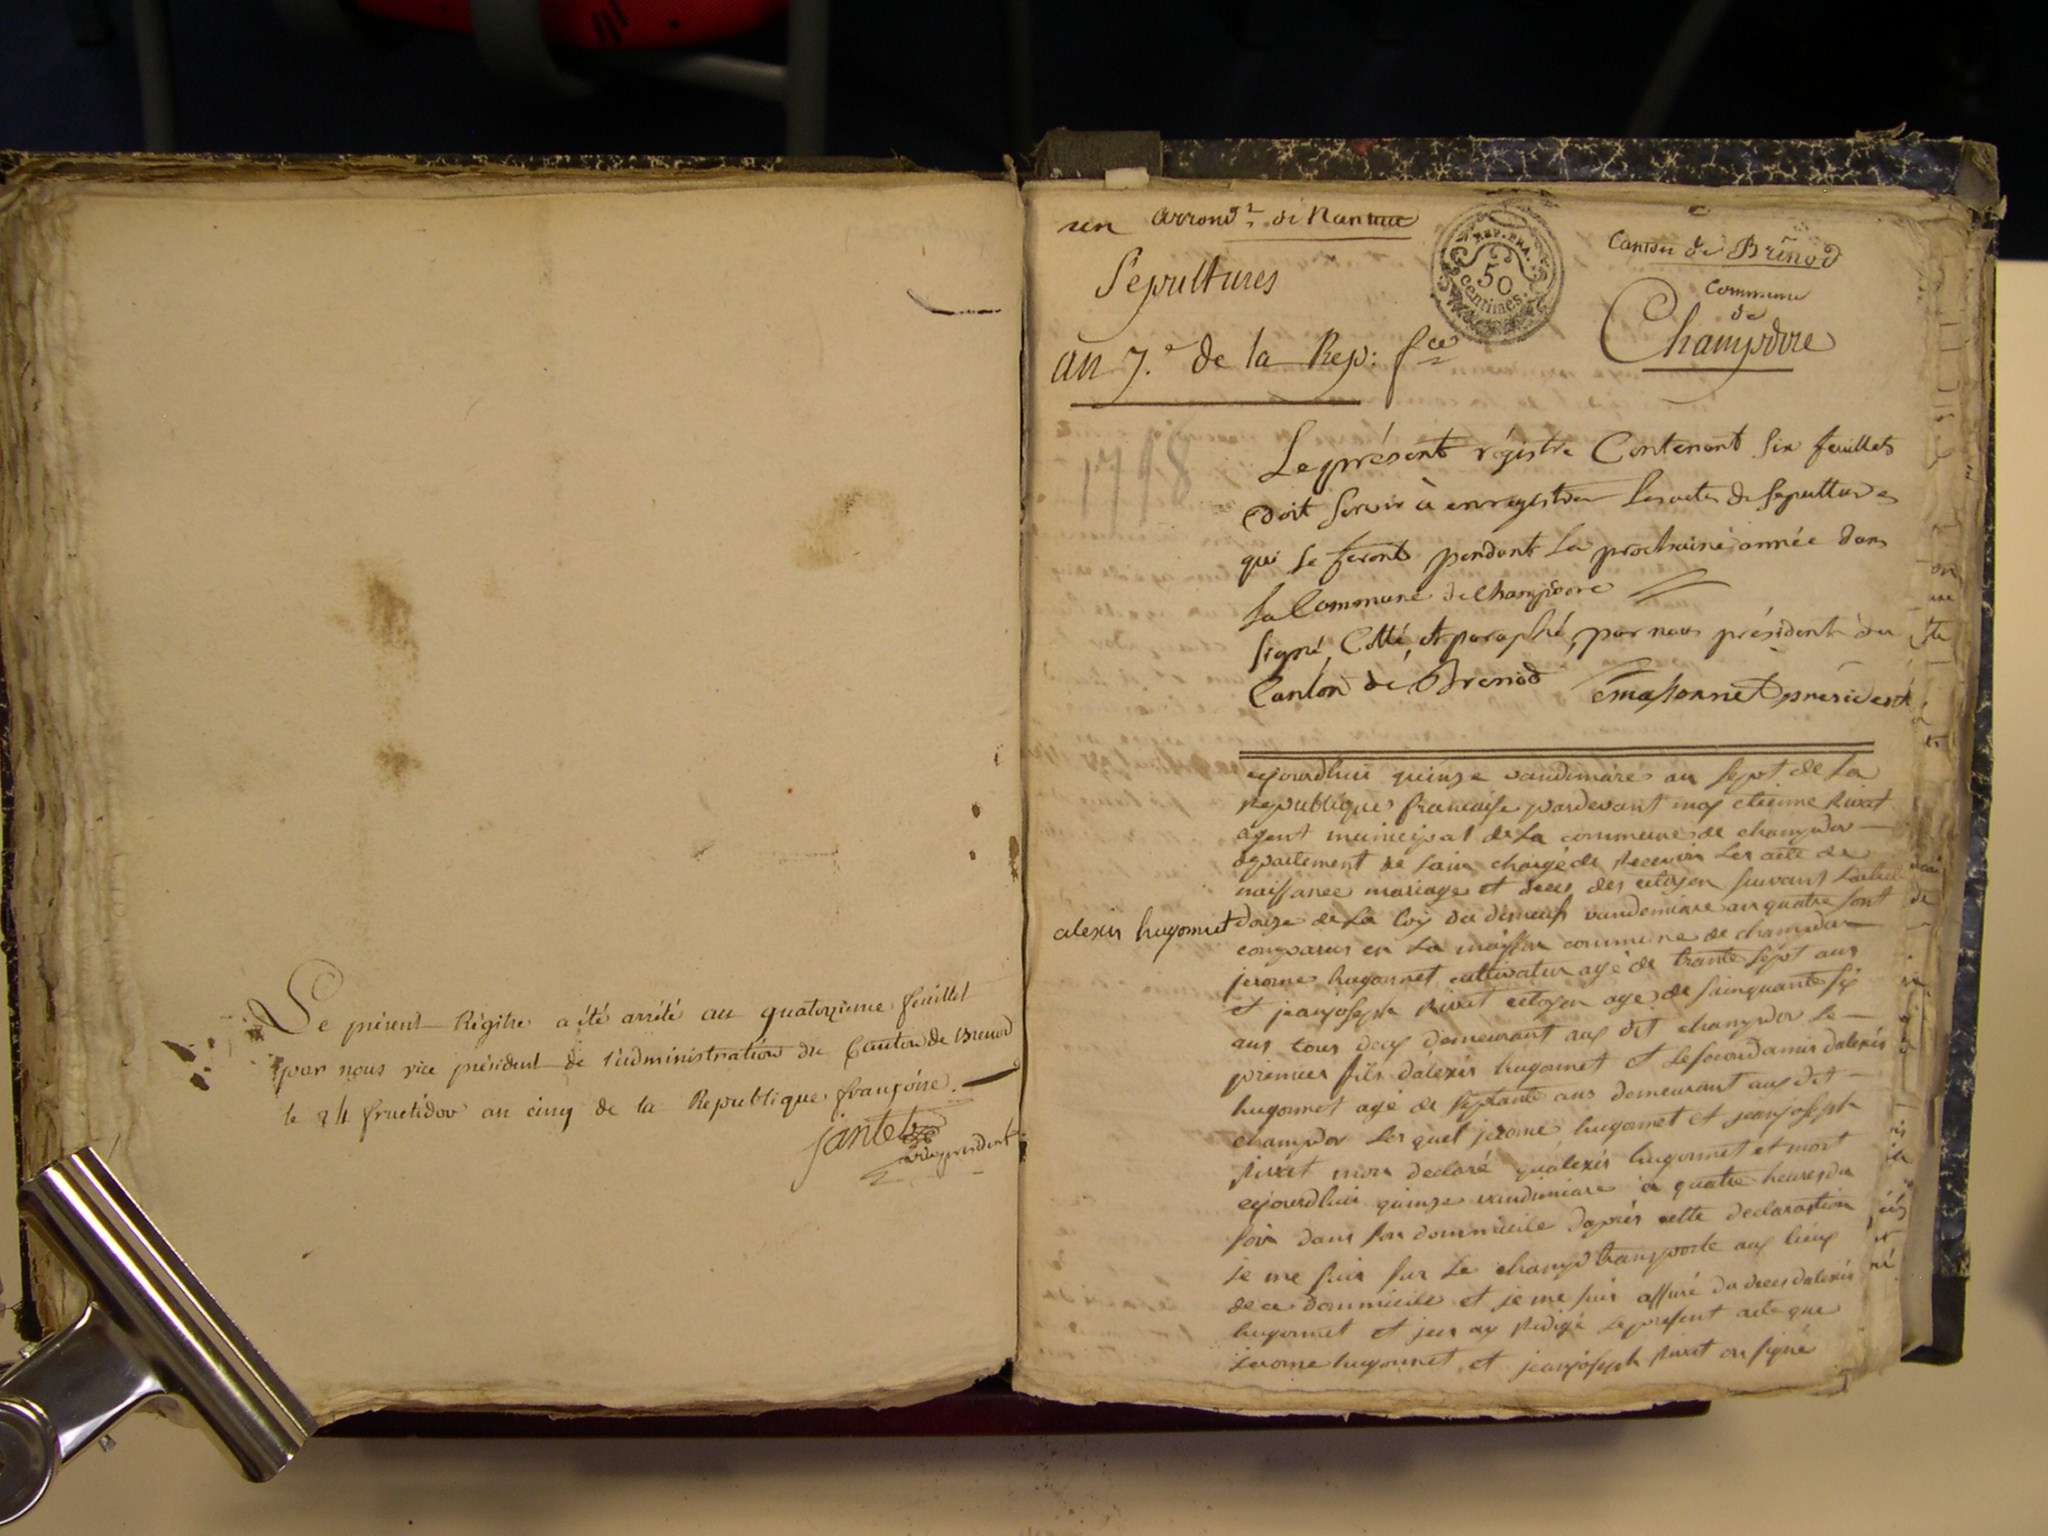 Le présent Régitre a été arrêté au quatorzieme feuillet
par nous vice président de l'administration du Canton de Brenod
le 24 fructidor an cinq de la Republique françoise.
jantet
vice president
arrond.t de Nantua
Sépultures
an 7.e de la Rep: fce
REP. FRA.
50
centimes.
Canton de Brénod
Commune
de
Champdore
1798
Le présent régistre Contenant six feuillets
doit servir à enregistrer les actes de sepultures
qui se feront pendant la prochaine année dans
la Commune de Champdore
signé, Cotté, et paraphé, par nous président du
Canton de Brenod Emasonnet président
alexis hugonnet
ejourdhui quinze vandemiare an sept de la
republique francaise pardevant moy etienne Rivat
agent municipal de la commune de champdor
departement de lain chargé de recevoir les acte de
naissance mariage et deces des citoyen suivant
douze de la loy du dimeuf vandemiare an quatre sont
comparus en la maison commune de champdor
jerome hugonnet cultivateur agé de trante sept ans
et jeanjoseph Rivat citoyen age de sinquante six
ans tous deux demeurant aux dit champdor le
premier fils dalexis hugonnet et le second amis dalexis
hugonnet agé de septante ans demeurant aux dit
champdor les quel jerome hugonnet et jeanjoseph
rivat mon declaré qualexis hugonnet et mort
ejourdhui quinze vandimiare a quatre heures du
soir dans son dommicile daprès cette declarastion
je me suis sur le champ transporte aux lieux
de ce dommicile et je me suis assuré du deces dalexis
hugonnet et jen ay redigé le present acte que
jerome hugonnet et jeanjoseph rivat on signé